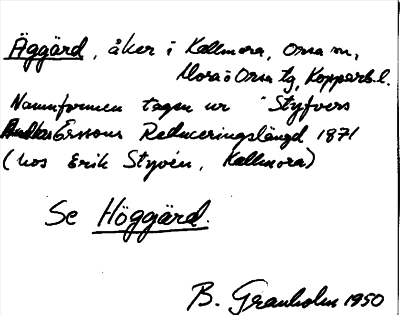 Äggärd, åker i Kallmora, Orsa sn,
Mora o Orsa tg, Kopparb. l.
Namnformen tagen ur "Styfvers
Anders Erssons Reduceringslängd 1871
(hos Erik Styvén, Kallmora)
Se Höggärd.
B. Granholm 1950